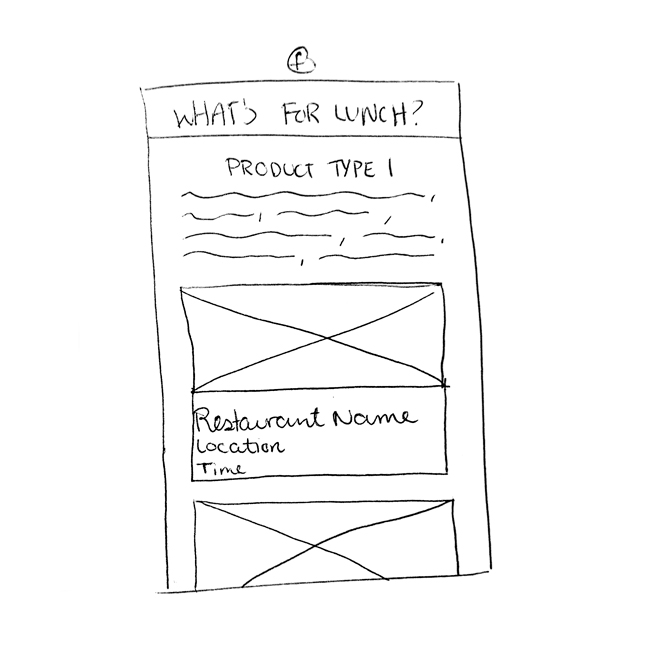 WHAT'S FOR LUNCH?
PRODUCT TYPE 1
Restaurant Name
Location
Time